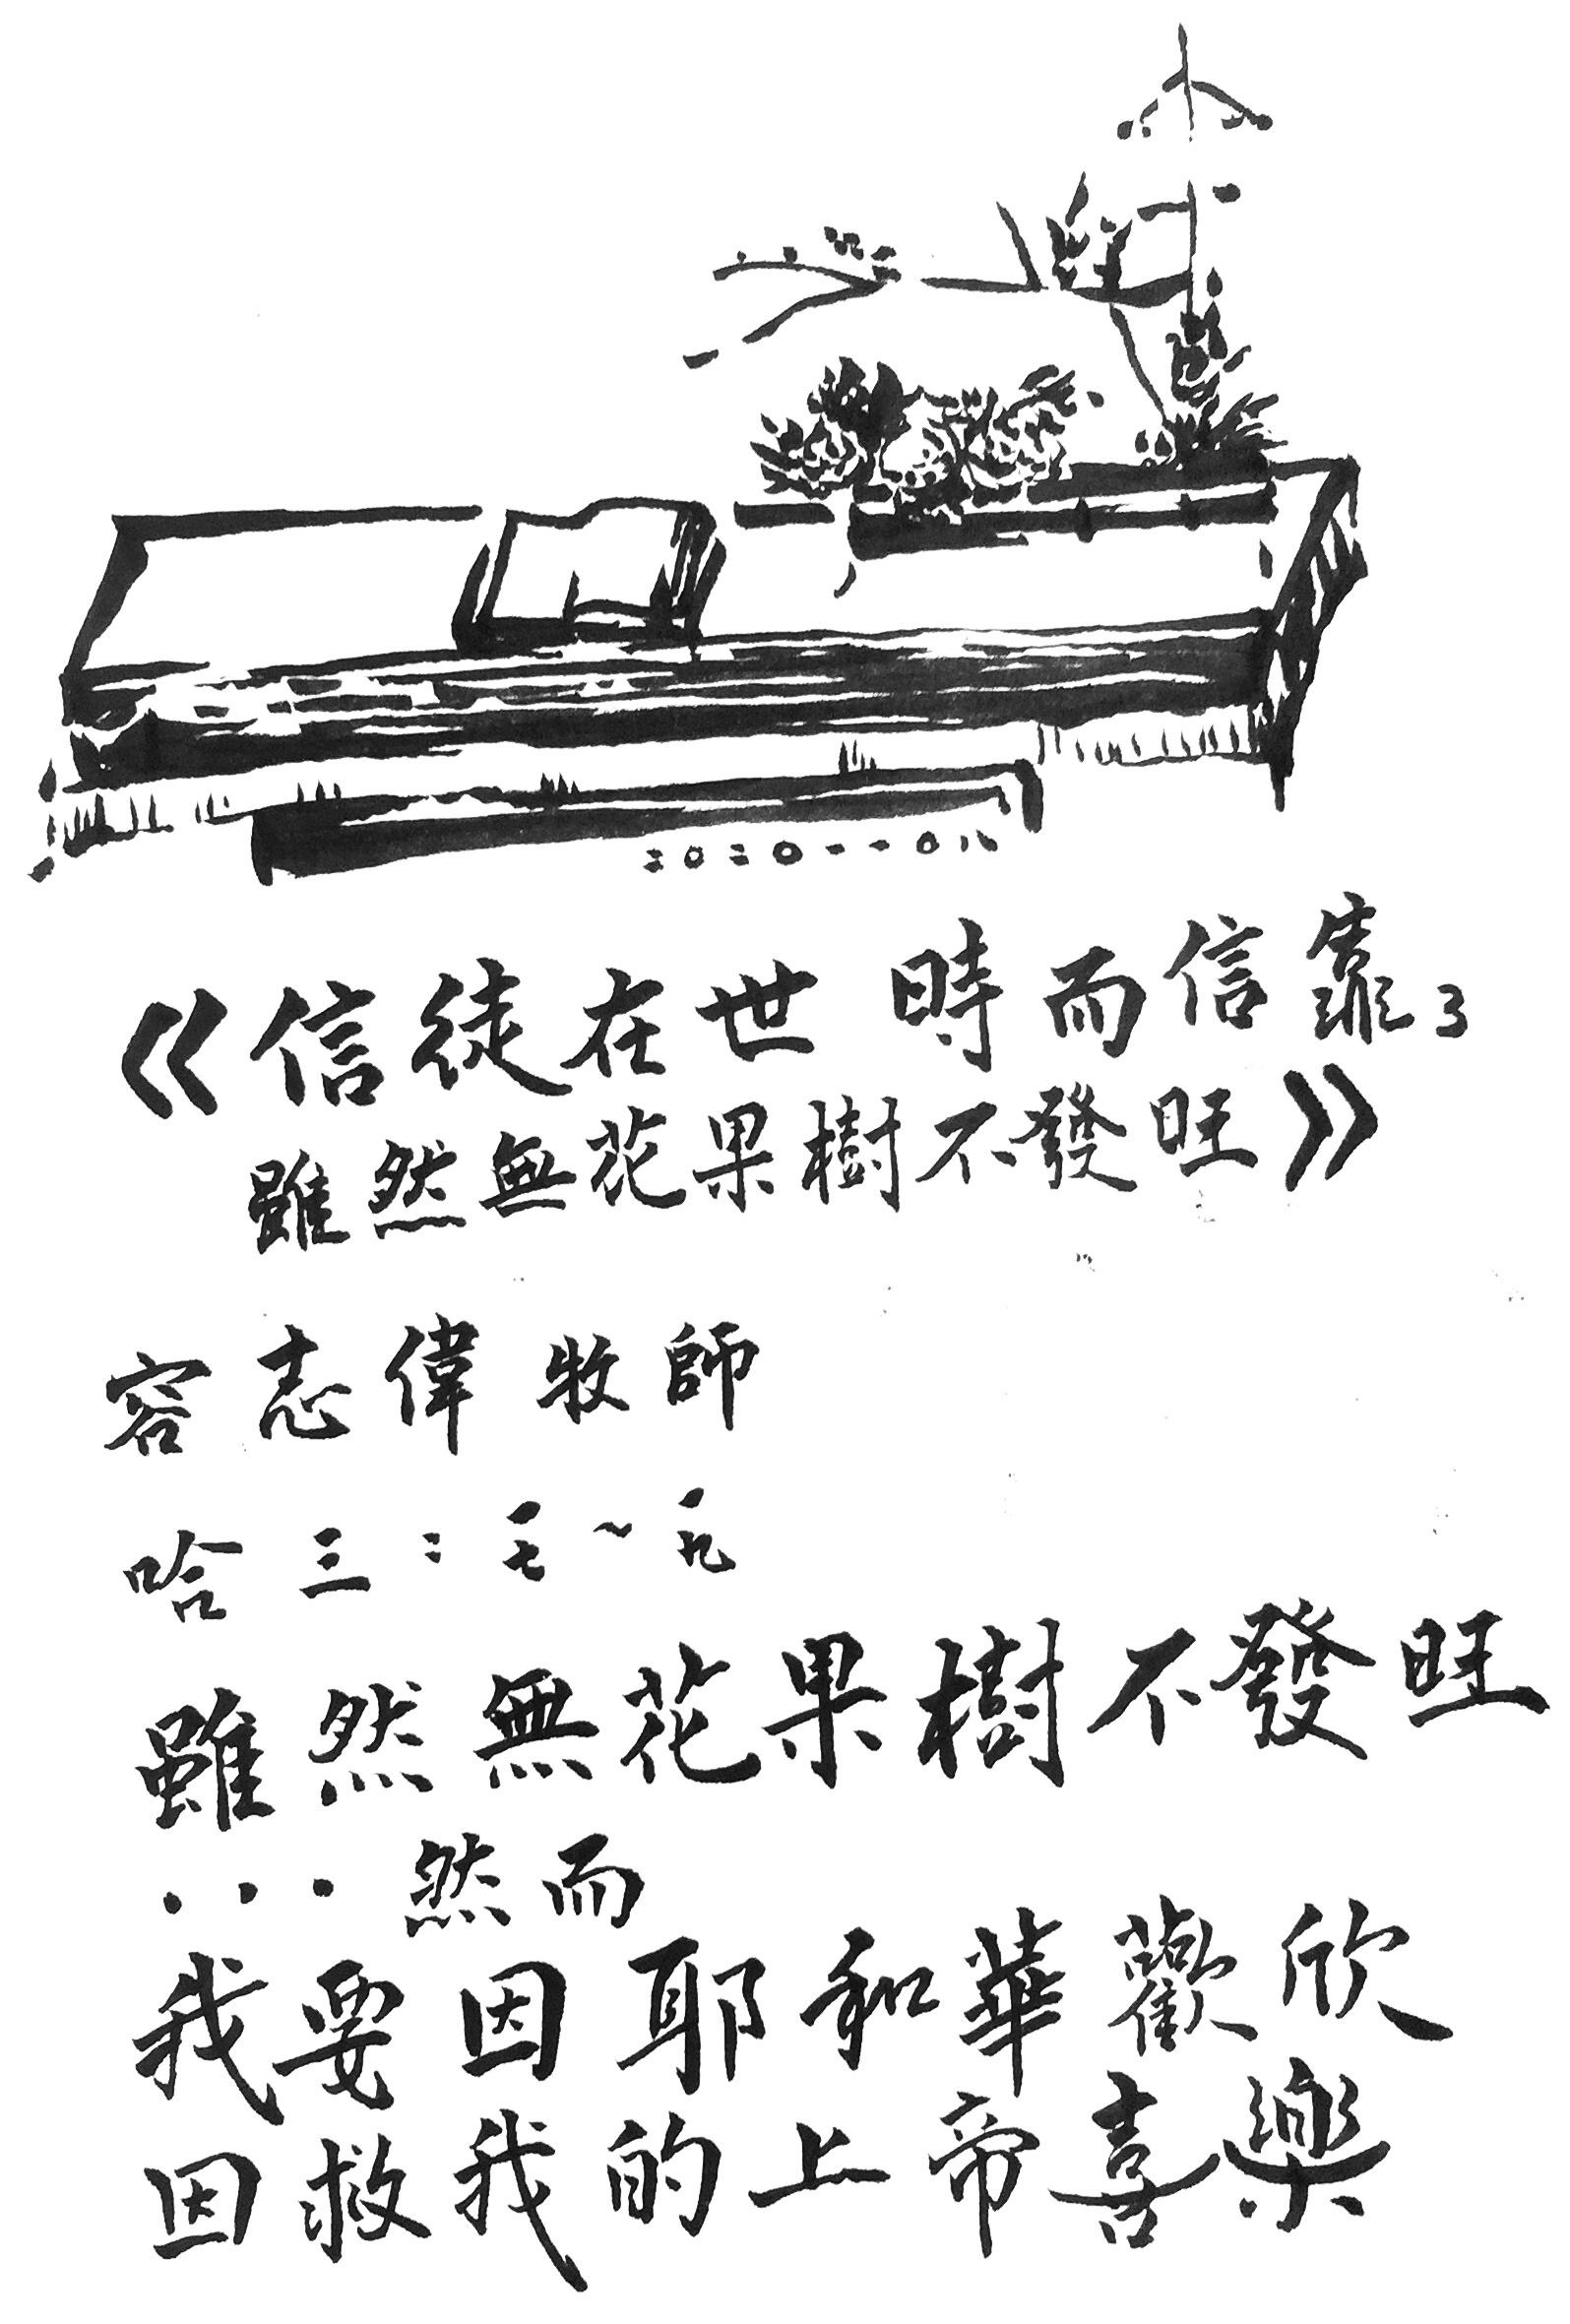 二〇二〇一一〇八
《信徒在世時而信靠3
雖然無花果樹不發旺》
容志偉牧師
哈三：一七~一九
雖然無花果樹不發旺
···然而
我要因耶和華歡欣
因救我的上帝喜樂